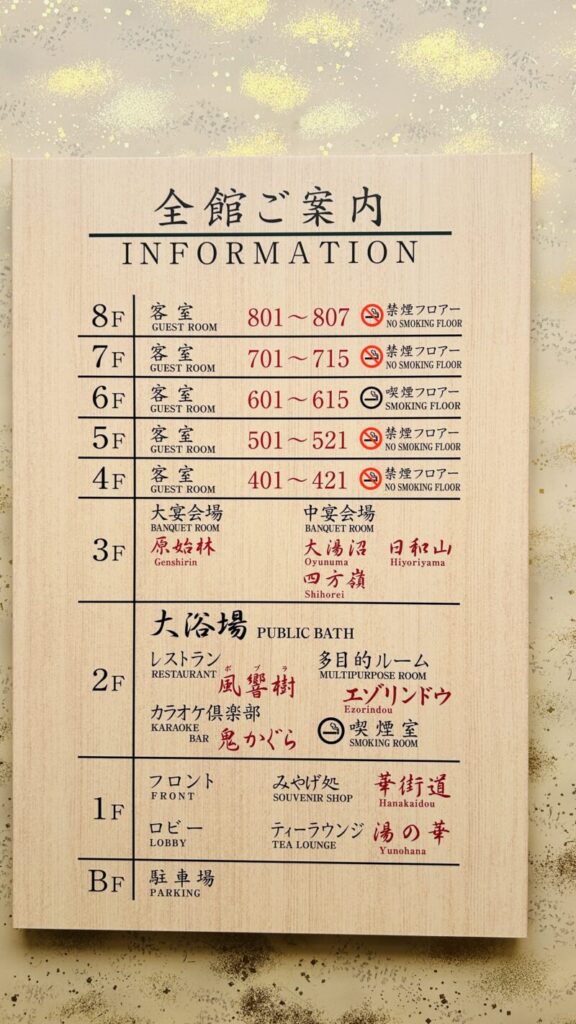 全館ご案内
INFORMATION
8F 客室 801～807 禁煙フロアー
GUEST ROOM NO SMOKING FLOOR
7F 客室 701～715 禁煙フロアー
GUEST ROOM NO SMOKING FLOOR
6F 客室 601～615 喫煙フロアー
GUEST ROOM SMOKING FLOOR
5F 客室 501～521 禁煙フロアー
GUEST ROOM NO SMOKING FLOOR
4F 客室 401～421 禁煙フロアー
GUEST ROOM NO SMOKING FLOOR
3F
大宴会場 中宴会場
BANQUET ROOM BANQUET ROOM
原始林 大湯沼 日和山
Genshirin Oyunuma Hiyoriyama
四方嶺
Shihorei
2F
大浴場 PUBLIC BATH
レストラン 多目的ルーム
RESTAURANT MULTIPURPOSE ROOM
ポプラ
風響樹 エゾリンドウ
Ezorindou
カラオケ倶楽部 喫煙室
KARAOKE SMOKING ROOM
BAR 鬼かぐら
1F
フロント みやげ処 華街道
FRONT SOUVENIR SHOP Hanakaidou
ロビー ティーラウンジ 湯の華
LOBBY TEA LOUNGE Yunohana
BF 駐車場
PARKING